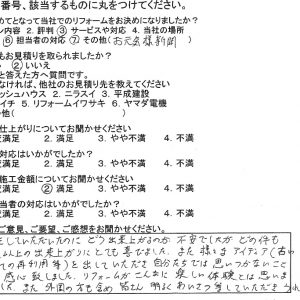 番号、該当するものに丸をつけてください。
めてとなって当社でのリフォームをお決めになりましたか?
ン 2. 評判 ③ サービスや対応 4. 当社の場所
⑥ 担当者の対応 ⑦ その他(お天気様新聞
もお見積りを取られましたか?
② いいえ
と答えた方へ質問です。
なければ、他社のお見積り先を教えてください。
ッシュハウス 2. ニラスイ 3. 平成建設
イチ 5. リフォームイワサキ 6. ヤマダ電機
他(
仕上がりについてお聞かせください
満足 2. 満足 3. やや不満 4. 不満
対応はいかがでしたか?
満足 2. 満足 3. やや不満 4. 不満
施工金額についてお聞かせください
満足 ② 満足 3. やや不満 4. 不満
当者の対応はいかがでしたか?
満足 2. 満足 3. やや不満 4. 不満
ご意見、ご要望、ご感想をお聞かせください。
していただいたのに どう出来上がるのか 不安でしたが どの件も
以上の出来上がりに とても 様々な アイデア(古い
の再利用等)を出していただき 自分たちでは思いつかないこと
感心致しました。リフォームがこんなに楽しい体験とは思いま
また 外回りの方も含め 皆さん 明るく あいさつ等していただき